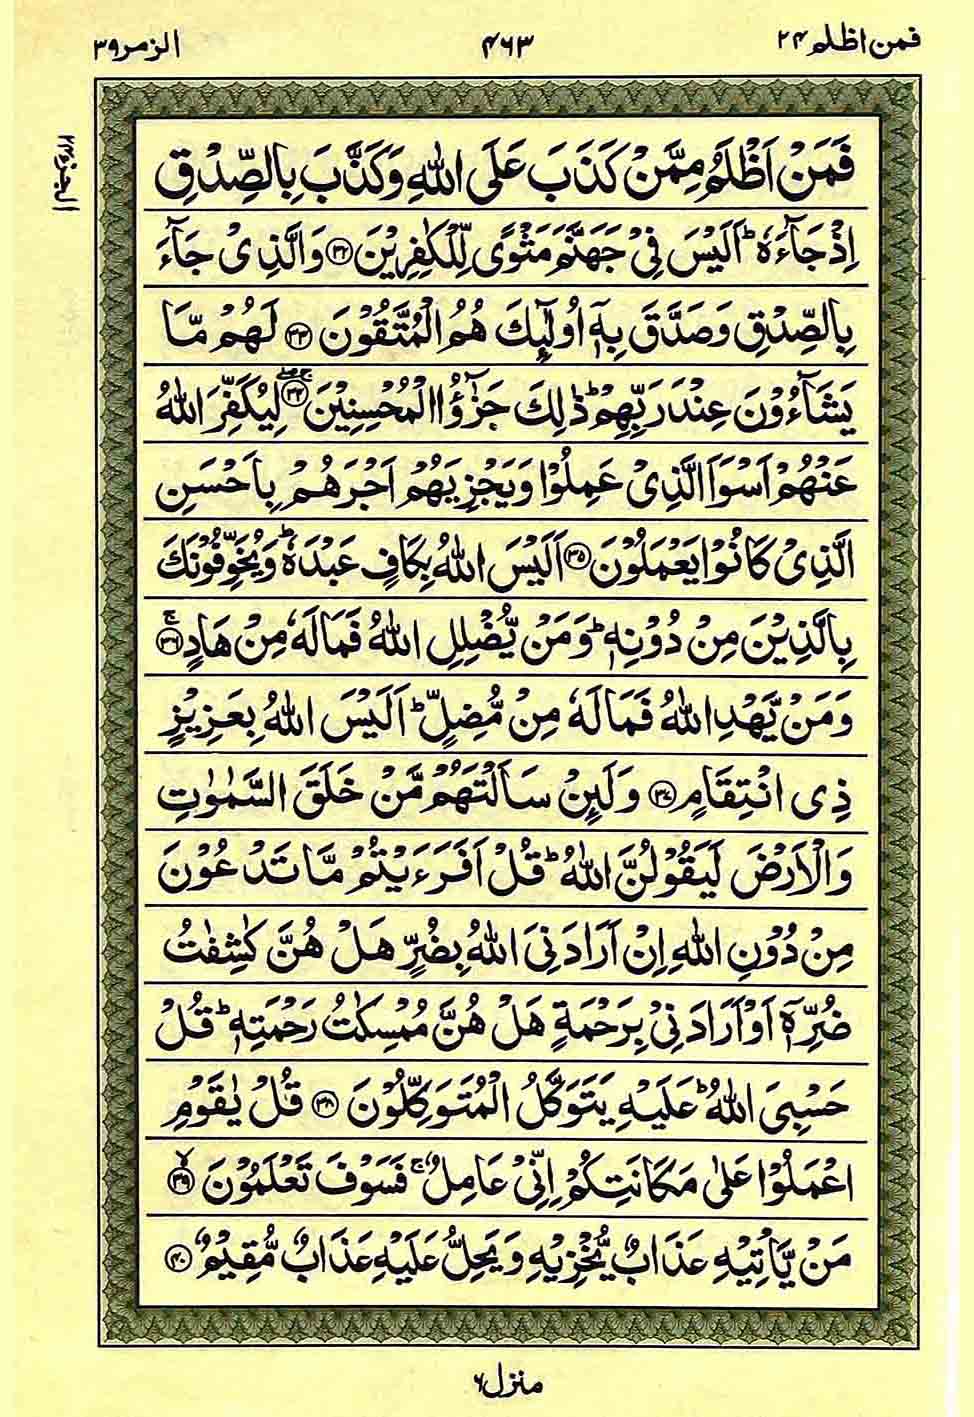 فمن اظلم ۲۴
۴۶۳
الزمر ۳۹
الجزء ۲۴
فَمَنْ اَظْلَمُ مِمَّنْ كَذَبَ عَلَى اللّٰهِ وَكَذَّبَ بِالصِّدْقِ
اِذْ جَآءَهٗ ؕ اَلَيْسَ فِيْ جَهَنَّمَ مَثْوًى لِّلْكٰفِرِيْنَ ﴿۳۲﴾ وَالَّذِيْ جَآءَ
بِالصِّدْقِ وَصَدَّقَ بِهٖۤ اُولٰٓئِكَ هُمُ الْمُتَّقُوْنَ ﴿۳۳﴾ لَهُمْ مَّا
يَشَآءُوْنَ عِنْدَ رَبِّهِمْ ؕ ذٰلِكَ جَزٰٓؤُا الْمُحْسِنِيْنَ ﴿۳۴﴾ لِيُكَفِّرَ اللّٰهُ
عَنْهُمْ اَسْوَاَ الَّذِيْ عَمِلُوْا وَيَجْزِيَهُمْ اَجْرَهُمْ بِاَحْسَنِ
الَّذِيْ كَانُوْا يَعْمَلُوْنَ ﴿۳۵﴾ اَلَيْسَ اللّٰهُ بِكَافٍ عَبْدَهٗ ؕ وَيُخَوِّفُوْنَكَ
بِالَّذِيْنَ مِنْ دُوْنِهٖ ؕ وَمَنْ يُّضْلِلِ اللّٰهُ فَمَا لَهٗ مِنْ هَادٍ ﴿۳۶﴾ ۚ
وَمَنْ يَّهْدِ اللّٰهُ فَمَا لَهٗ مِنْ مُّضِلٍّ ؕ اَلَيْسَ اللّٰهُ بِعَزِيْزٍ
ذِي انْتِقَامٍ ﴿۳۷﴾ وَلَئِنْ سَاَلْتَهُمْ مَّنْ خَلَقَ السَّمٰوٰتِ
وَالْاَرْضَ لَيَقُوْلُنَّ اللّٰهُ ؕ قُلْ اَفَرَءَيْتُمْ مَّا تَدْعُوْنَ
مِنْ دُوْنِ اللّٰهِ اِنْ اَرَادَنِيَ اللّٰهُ بِضُرٍّ هَلْ هُنَّ كٰشِفٰتُ
ضُرِّهٖۤ اَوْ اَرَادَنِيْ بِرَحْمَةٍ هَلْ هُنَّ مُمْسِكٰتُ رَحْمَتِهٖ ؕ قُلْ
حَسْبِيَ اللّٰهُ ؕ عَلَيْهِ يَتَوَكَّلُ الْمُتَوَكِّلُوْنَ ﴿۳۸﴾ قُلْ يٰقَوْمِ
اعْمَلُوْا عَلٰى مَكَانَتِكُمْ اِنِّيْ عَامِلٌ ۚ فَسَوْفَ تَعْلَمُوْنَ ﴿۳۹﴾ ۙ
مَنْ يَّاْتِيْهِ عَذَابٌ يُّخْزِيْهِ وَيَحِلُّ عَلَيْهِ عَذَابٌ مُّقِيْمٌ ﴿۴۰﴾
منزل ۶